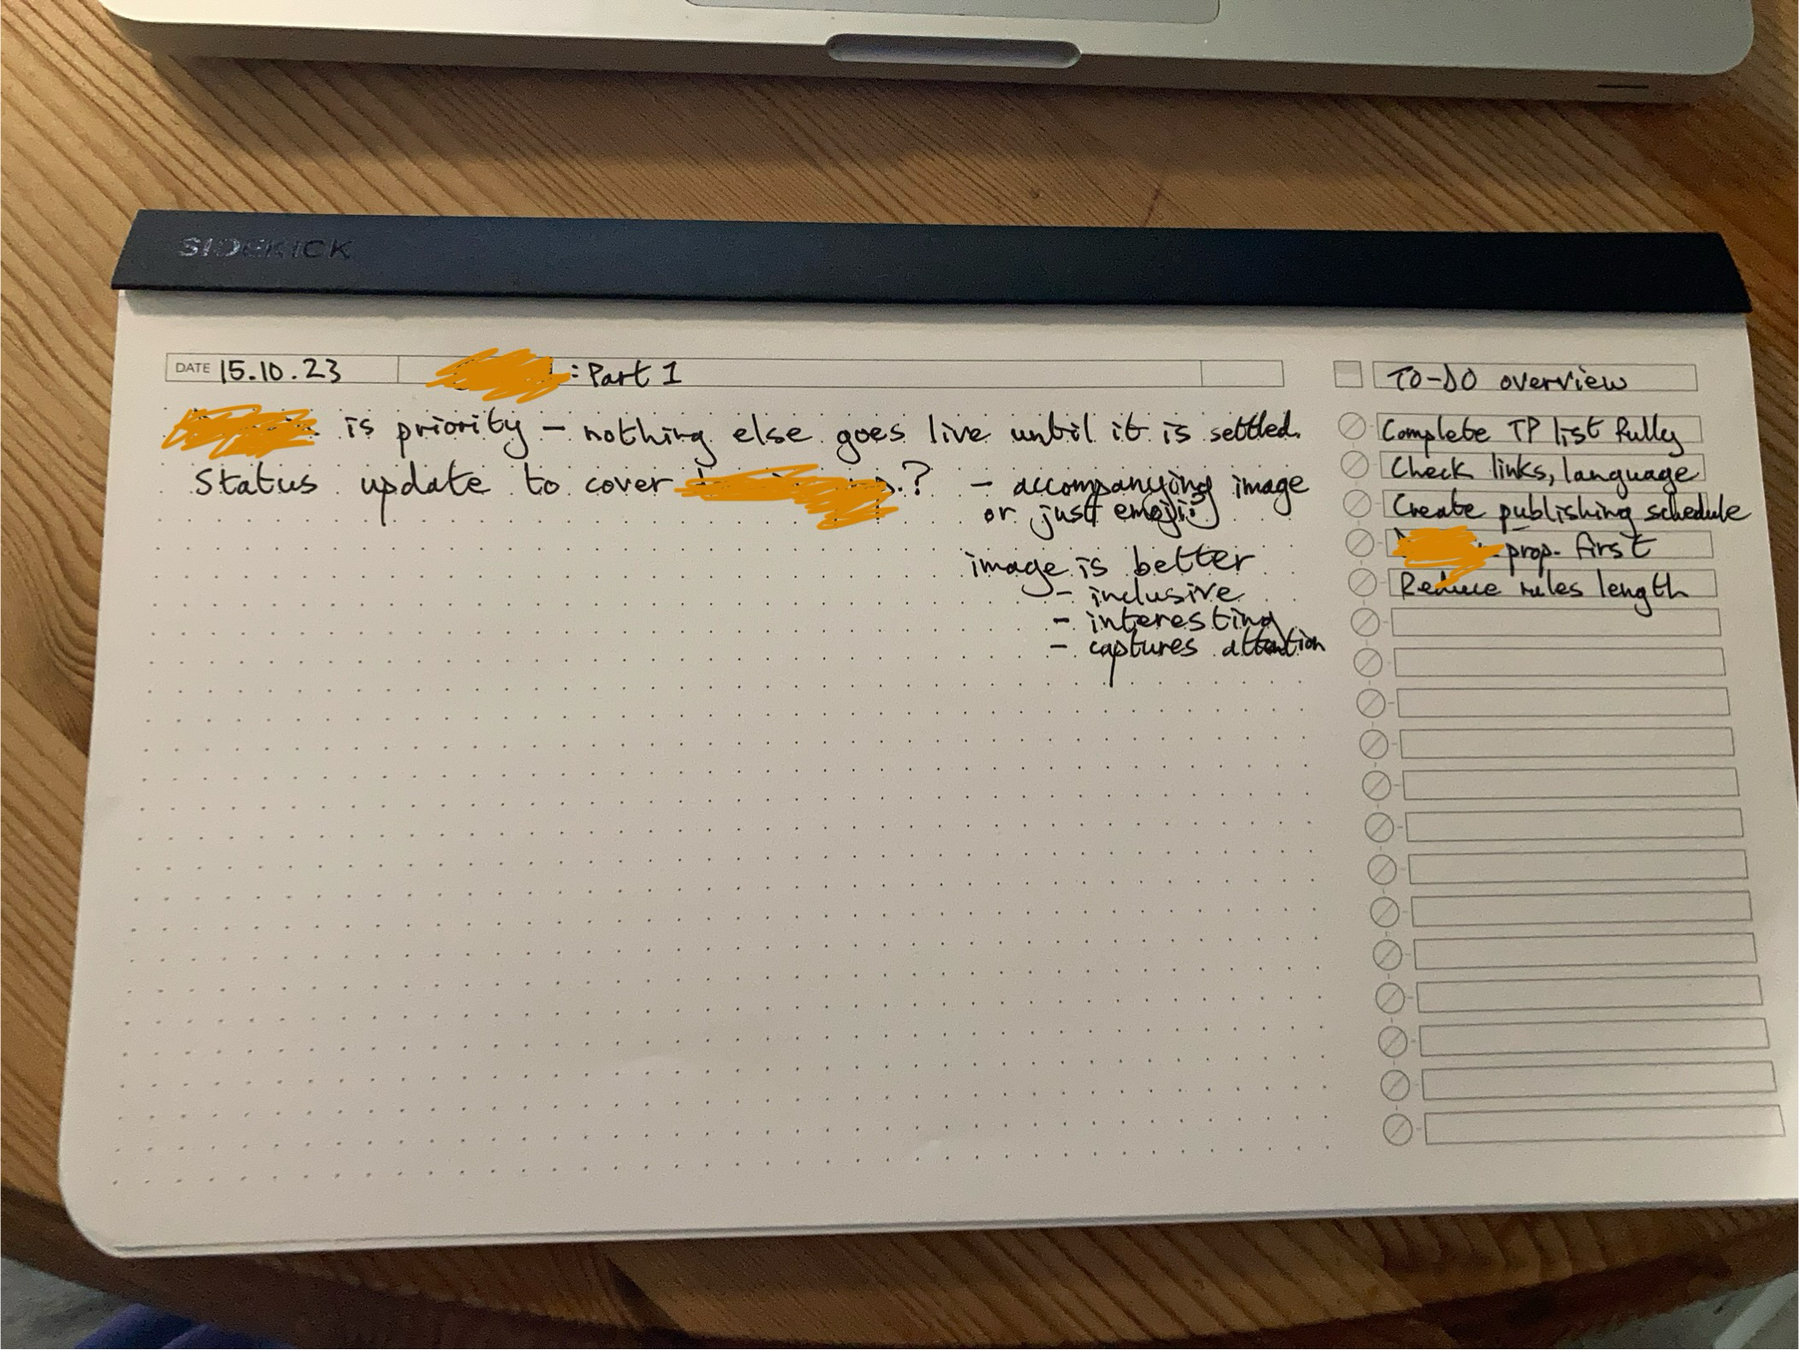 SIDEKICK
DATE 15.10.23 : Part 1
is priority - nothing else goes live until it is settled.
Status update to cover ? - accompanying image
or just emoji?
image is better
- inclusive
- interesting
- captures attention
TO-DO overview
Complete TP list fully
Check links, language
Create publishing schedule
prop. first
Reduce rules length